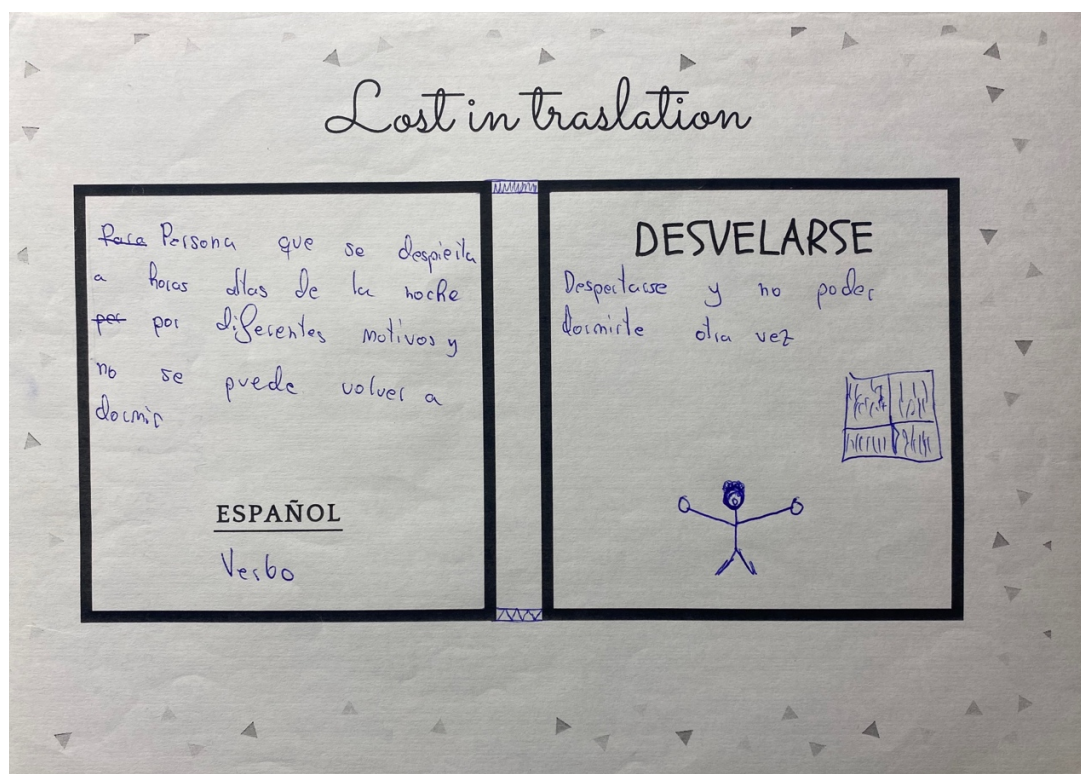 Lost in traslation
Para Persona que se despieita
a horas altas de la noche
per por diferentes motivos y
no se puede volver a
dormir
ESPAÑOL
Verbo
DESVELARSE
Despertarse y no poder
dormirte otra vez